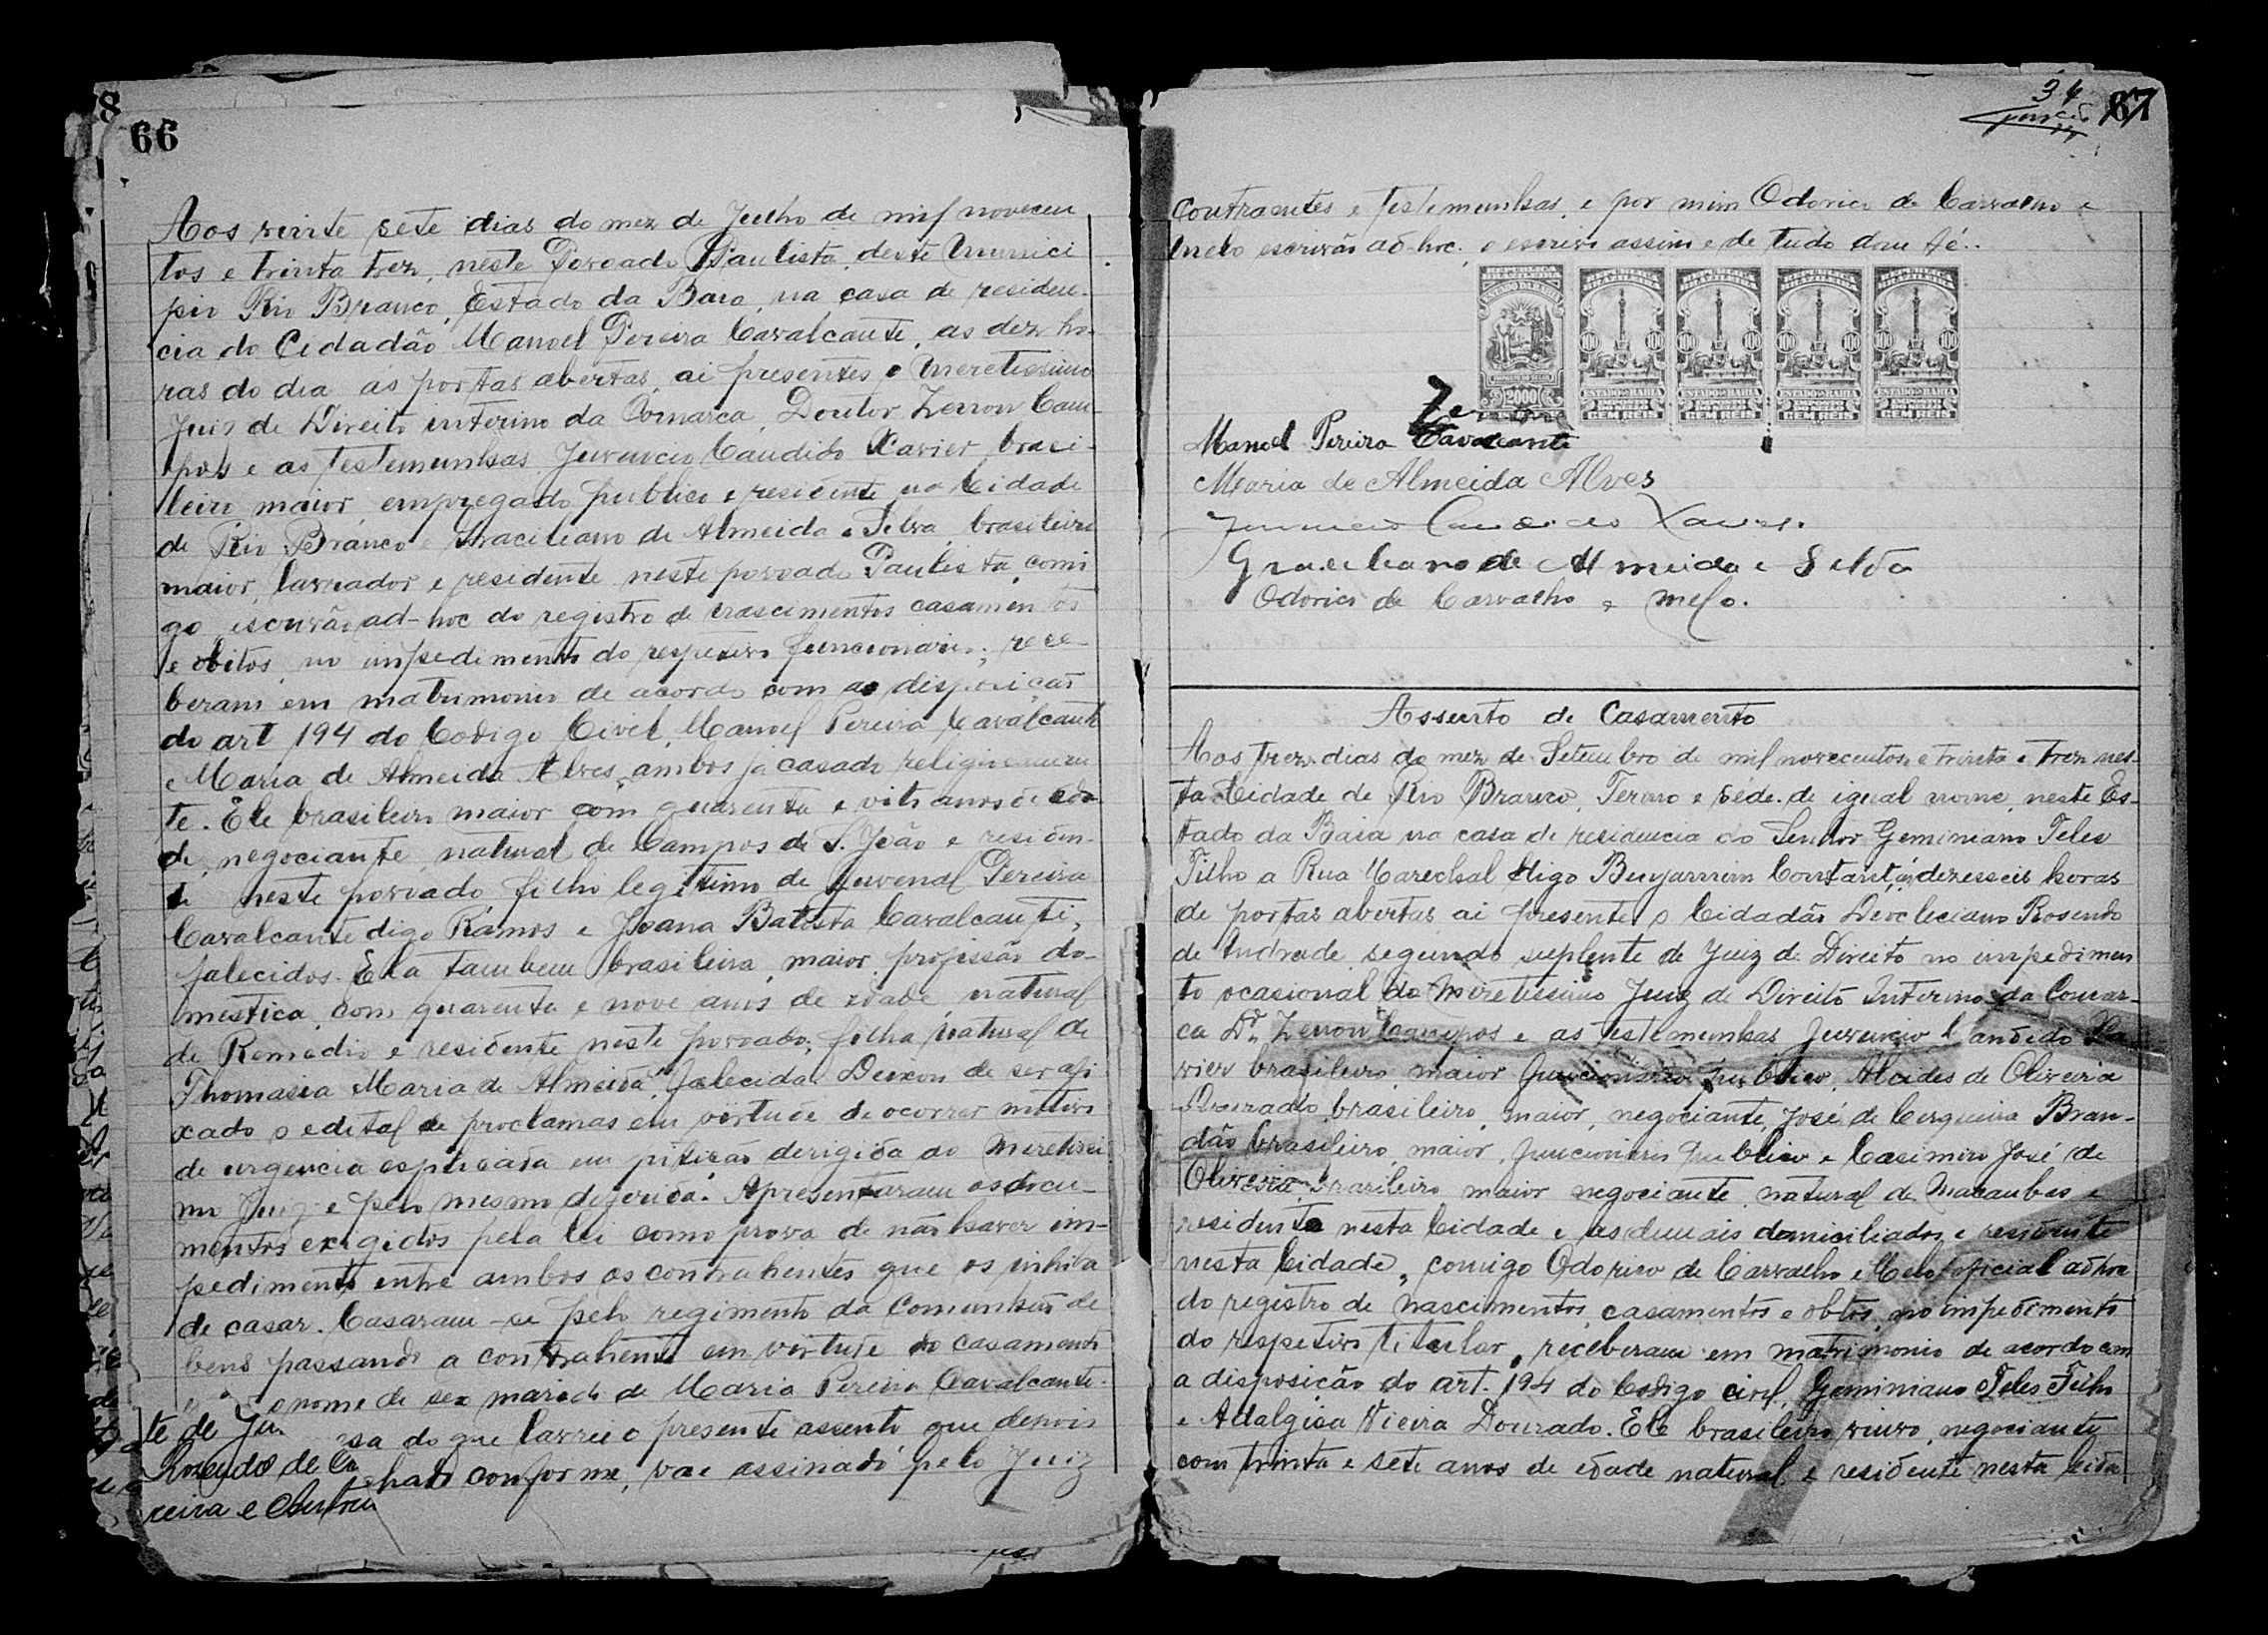 66
Aos vinte sete dias do mez de Julho de mil novecen
tos e trinta trez, neste Povoado Paulista, deste Munici
pio Rio Branco, Estado da Baia, na casa de residen-
cia do Cidadão Manoel Pereira Cavalcante, as dez ho-
ras do dia as portas abertas, ai presentes o Meretissimo
Juis de Direito interino da Comarca, Doutor Zenon Cam-
pos e as testemunhas Juvencio Candido Xavier brasi-
leiro maior empregado publico e residente na Cidade
de Rio Branco e Graciliano de Almeida e Silva, brasileiro
maior, lavrador e residente neste povoado Paulista, comi
go escrivão ad-hoc do registro de nascimentos casamentos
e obitos, no impedimento do respetivo funcionario; rece-
beram em matrimonio de acordo com as disposições
do art 194 do Codigo Civil, Manoel Pereira Cavalcante
e Maria de Almeida Alves, ambos já casado religiosamen
te. Ele brasileiro maior com quarenta e oito anos de eda
de, negociante natural de Campos de S. João e residen-
te neste povoado, filho legitimo de Juvenal Pereira
Cavalcante digo Ramos e Joana Batista Cavalcanti,
falecidos. Ela tambem brasileira, maior, profissão do-
mestica, com quarenta e nove anos de edade, natural
de Remedio e residente neste povoado, filha natural de
Thomasia Maria de Almeida, falecida. Deixou de ser afi
xado o edital de proclamas em virtude de ocorrer motivo
de urgencia esplicada em pitição derigida ao Meretissi
mo Juiz e pelo mesmo deferida. Apresentaram os docu-
mentos exigidos pela lei como prova de não haver im-
pedimento entre ambos os contrahentes que os inhiba
de casar. Casaram-se pelo regimento da Comunhão de
bens passando a contrahente em virtude do casamento
o nome de seu marido de Maria Pereira Cavalcante.
te de Ju. sa do que lavrei o presente assento que depois
Rosendo de hado conforme, vae assinado pelo Juiz
reira e
67
34
contraentes e testemunhas, e por mim Odorico de Carvalho e
Melo escrivão ad-hoc, o escrevi assim e de tudo dou fé..
REPUBLICA BRASILEIRA
ESTADO DA BAHIA
2000
100 100
ESTADO DA BAHIA
CEM REIS
100 100
ESTADO DA BAHIA
CEM REIS
100 100
ESTADO DA BAHIA
CEM REIS
100 100
ESTADO DA BAHIA
CEM REIS
Manoel Pereira Cavalcante
Maria de Almeida Alves
Juvencio Candido Xavier.
Graciliano de Almeida e Silva
Odorico de Carvalho e Melo.
Assento de Casamento
Aos trez dias do mez de Setembro de mil novecentos e trinta e trez nes-
ta Cidade de Rio Branco, Termo e séde de igual nome, neste Es-
tado da Baia na casa de residencia do Senhor Geminiano Teles
Filho a Rua Marechal digo Benjamim Constant, ás dezesseis horas
de portas abertas, ai presente o Cidadão Diocleciano Rosendo
de Andrade segundo suplente de Juiz de Direito no impedimen
to ocasional do Miretissimo Juiz de Direito Interino da Comar-
ca Dr. Zenon Campos e as testemunhas Juvencio Candido Xa
vier brasileiro, maior funcionario publico, Alcides de Oliveira
Dourado, brasileiro, maior, negociante, José de Cerqueira Bran-
dão brasileiro, maior, funcionario publico e Casimiro José de
Oliveira brasileiro maior negociante, natural de Macaubas e
residente nesta Cidade e as demais domiciliados e residente
nesta Cidade, comigo Odorico de Carvalho e Melo oficial adhoc
do registro de nascimentos, casamentos e obtos, no impedimento
do respetivo titular, receberam em matrimonio de acordo com
a disposição do art. 194 do Codigo civil, Geminiano Teles Filho
e Adalgisa Vieira Dourado. Ele brasileiro viuvo, negociante
com trinta e sete anos de edade natural e residente nesta Cida